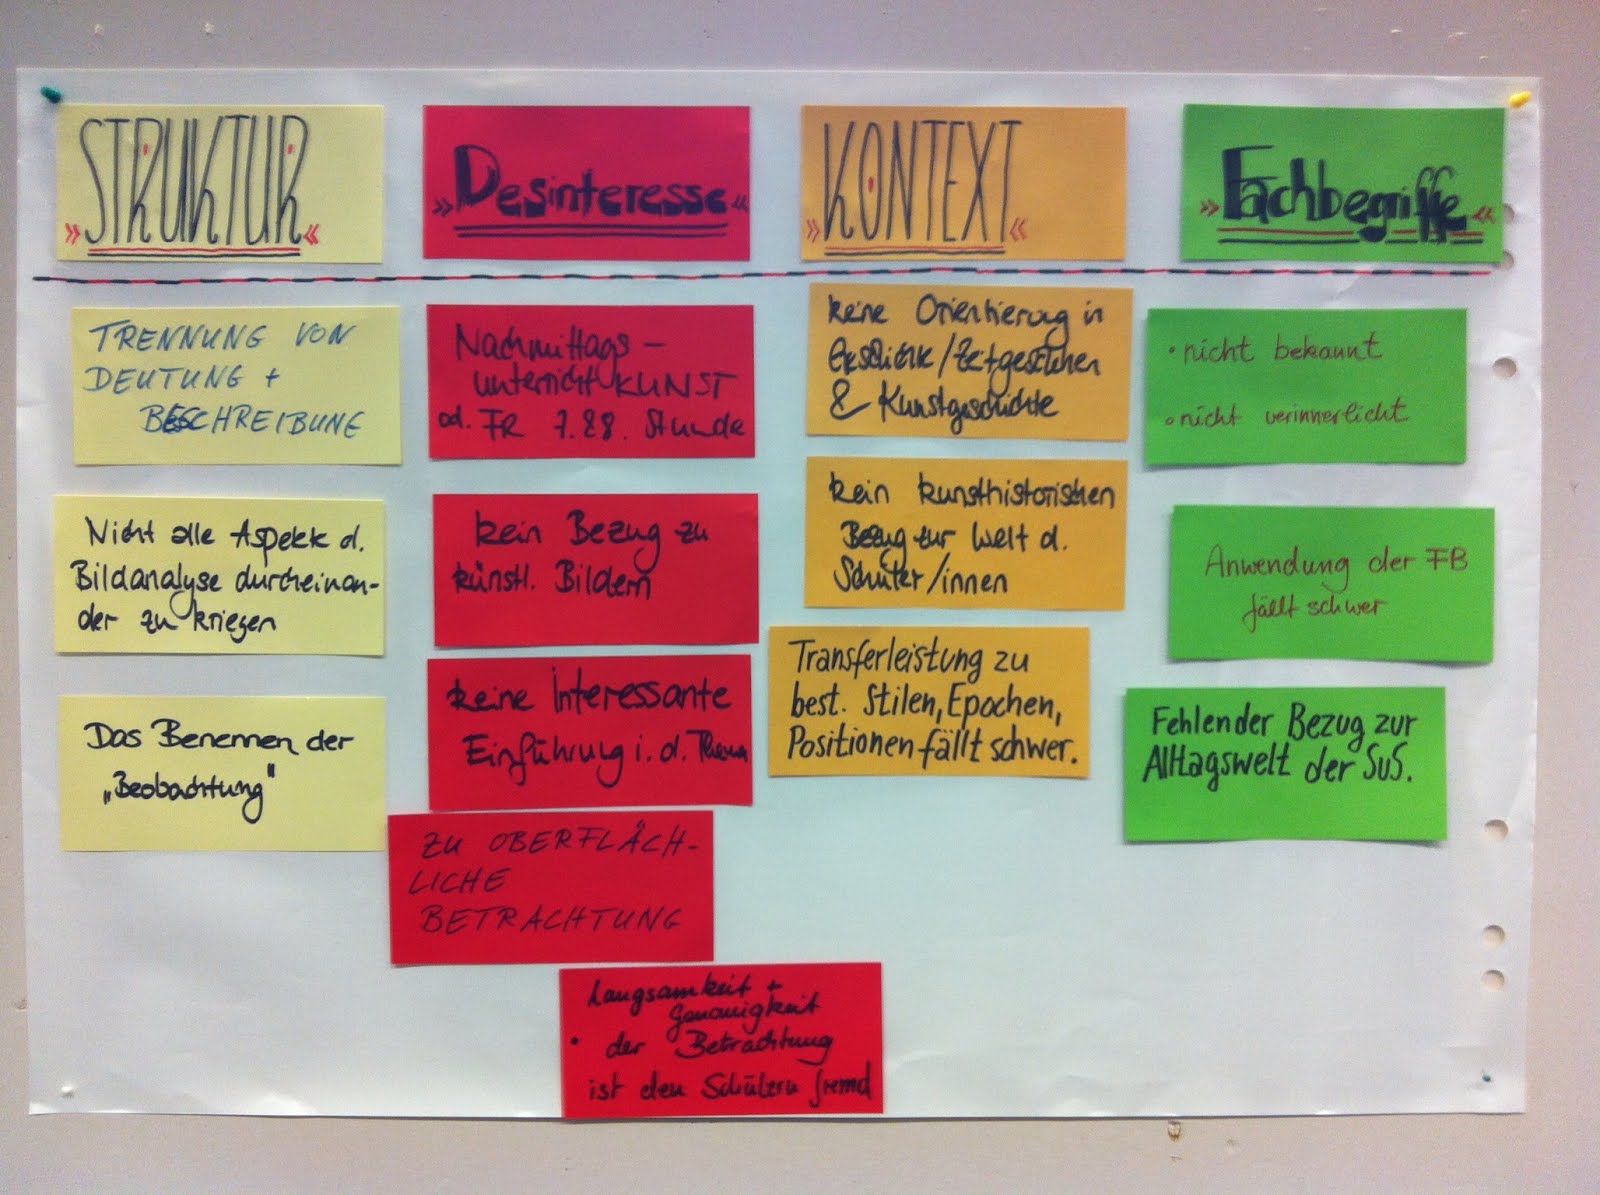 »STRUKTUR«
TRENNUNG VON
DEUTUNG +
BESCHREIBUNG
Nicht alle Aspekte d.
Bildanalyse durcheinan-
der zu kriegen
Das Benennen der
„Beobachtung"
»Desinteresse«
Nachmittags-
unterricht KUNST
od. FR 7. & 8. Stunde
kein Bezug zu
künstl. Bildern
keine Interessante
Einführung i. d. Thema
ZU OBERFLÄCH-
LICHE
BETRACHTUNG
Langsamkeit +
Genauigkeit
• der Betrachtung
ist den Schülern fremd
»KONTEXT«
keine Orientierung in
Geschichte/Zeitgeschehen
& Kunstgeschichte
kein kunsthistorischen
Bezug zur Welt d.
Schüler/innen
Transferleistung zu
best. Stilen, Epochen,
Positionen fällt schwer.
»Fachbegriffe«
• nicht bekannt
• nicht verinnerlicht
Anwendung der FB
fällt schwer
Fehlender Bezug zur
Alltagswelt der SuS.